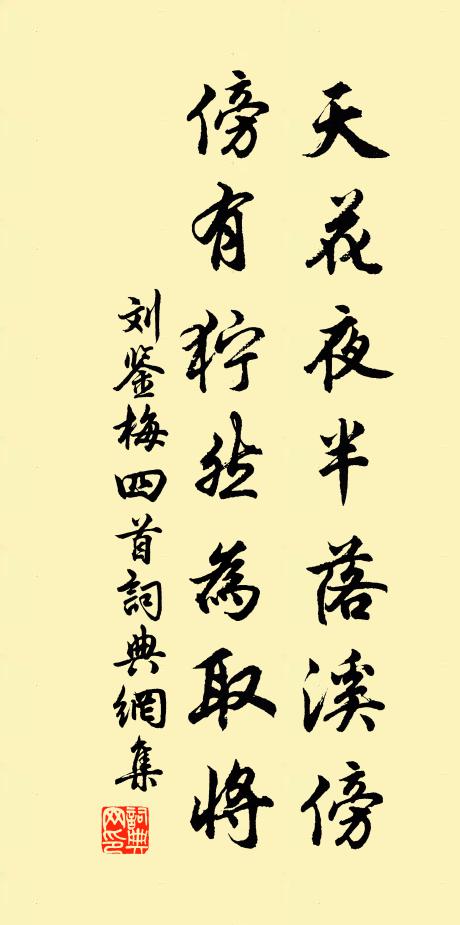 天花夜半落溪傍
傍有狞然為取将
刘鉴梅四首詞典網集
詞典網印